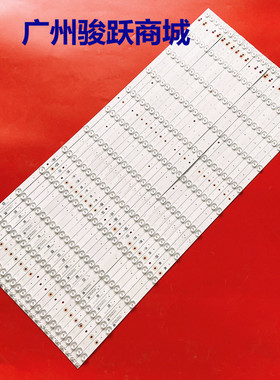 广州骏跃商城